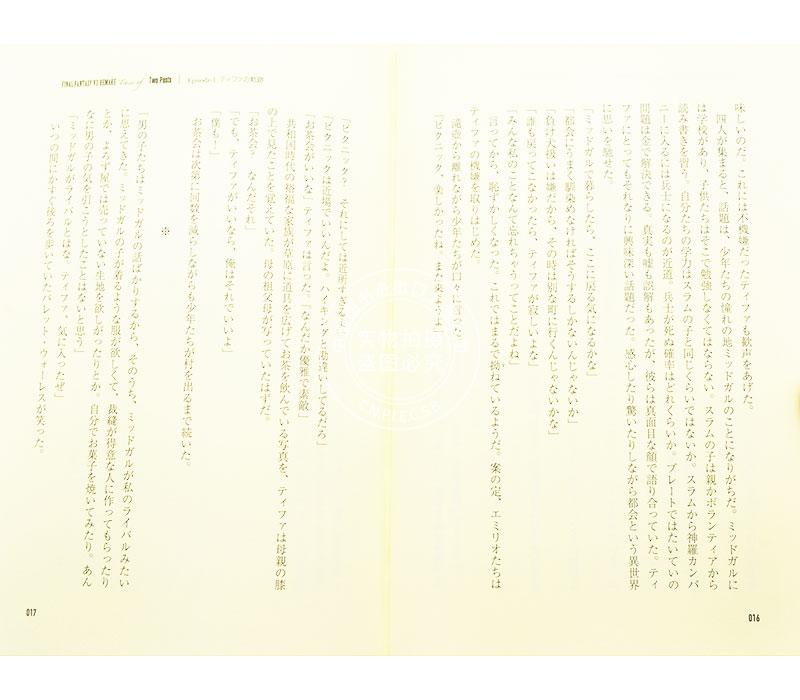 味しいのだ。これには不機嫌だったティファも歓声をあげた。
四人が集まると、話題は、少年たちの憧れの地ミッドガルのことになりがちだ。ミッドガルに
は学校があり、子供たちはそこで勉強しなくてはならない。スラムの子は親かボランティアから
読み書きを習う。自分たちの学力はスラムの子と同じくらいではないか。スラムから神羅カンパ
ニーに入るには兵士になるのが近道。兵士が死ぬ確率はどれくらいか。プレートではたいていの
問題は金で解決できる。真実も嘘も誤解もあったが、彼らは真面目な顔で語り合っていた。ティ
ファにとってもそれなりに興味深い話題だった。感心したり驚いたりしながら都会という異世界
に思いを馳せた。
「ミッドガルで暮らしたら、ここに戻る気になるかな」
「都会にうまく馴染めなければそうするしかないんじゃないか」
「負け犬扱いは嫌だから、その時は別な町に行くんじゃないかな」
「誰も戻ってこなかったら、ティファが寂しいよな」
「みんな私のことなんて忘れちゃうってことだよね」
言ってから、恥ずかしくなった。これではまるで拗ねているようだ。案の定、エミリオたちは
ティファの機嫌を取りはじめた。
滝壺から離れながら少年たちが口々に言った。
「ピクニック、楽しかったね。また来ようよ」
016
FINAL FANTASY VII REMAKE Traces of Two Pasts | Episode-1 ティファの軌跡
「ピクニック? それにしては近所すぎる
「ピクニックは近場でいいんだよ。ハイキングと勘違いしてるだろ」
「お茶会がいいな」ティファは言った。「なんだか優雅で素敵」
共和国時代の裕福な家族が草原に道具を広げてお茶を飲んでいる写真を、ティファは母親の膝
の上で見たことを覚えていた。母の祖父母が写っていたはずだ。
「お茶会? なんだそれ」
「でも、ティファがいいなら、俺はそれでいいよ」
「僕も!」
お茶会は次第に回数を減らしながらも少年たちが村を出るまで続いた。
※
「男の子たちはミッドガルの話ばかりするから、そのうち、ミッドガルが私のライバルみたい
に思えてきた。ミッドガルの子が着るような服が欲しくて、裁縫が得意な人に作ってもらったり
とか、よろず屋では売っていない生地を欲しがったりとか。自分でお菓子を焼いてみたり。あん
なに男の子の気を引こうとしたことはないと思う」
「ミッドガルがライバルとはな。ティファ、気に入ったぜ」
いつの間にかすぐ後ろを歩いていたバレット・ウォーレスが笑った。
017
实物拍摄
盗图必究
CNPIECSB